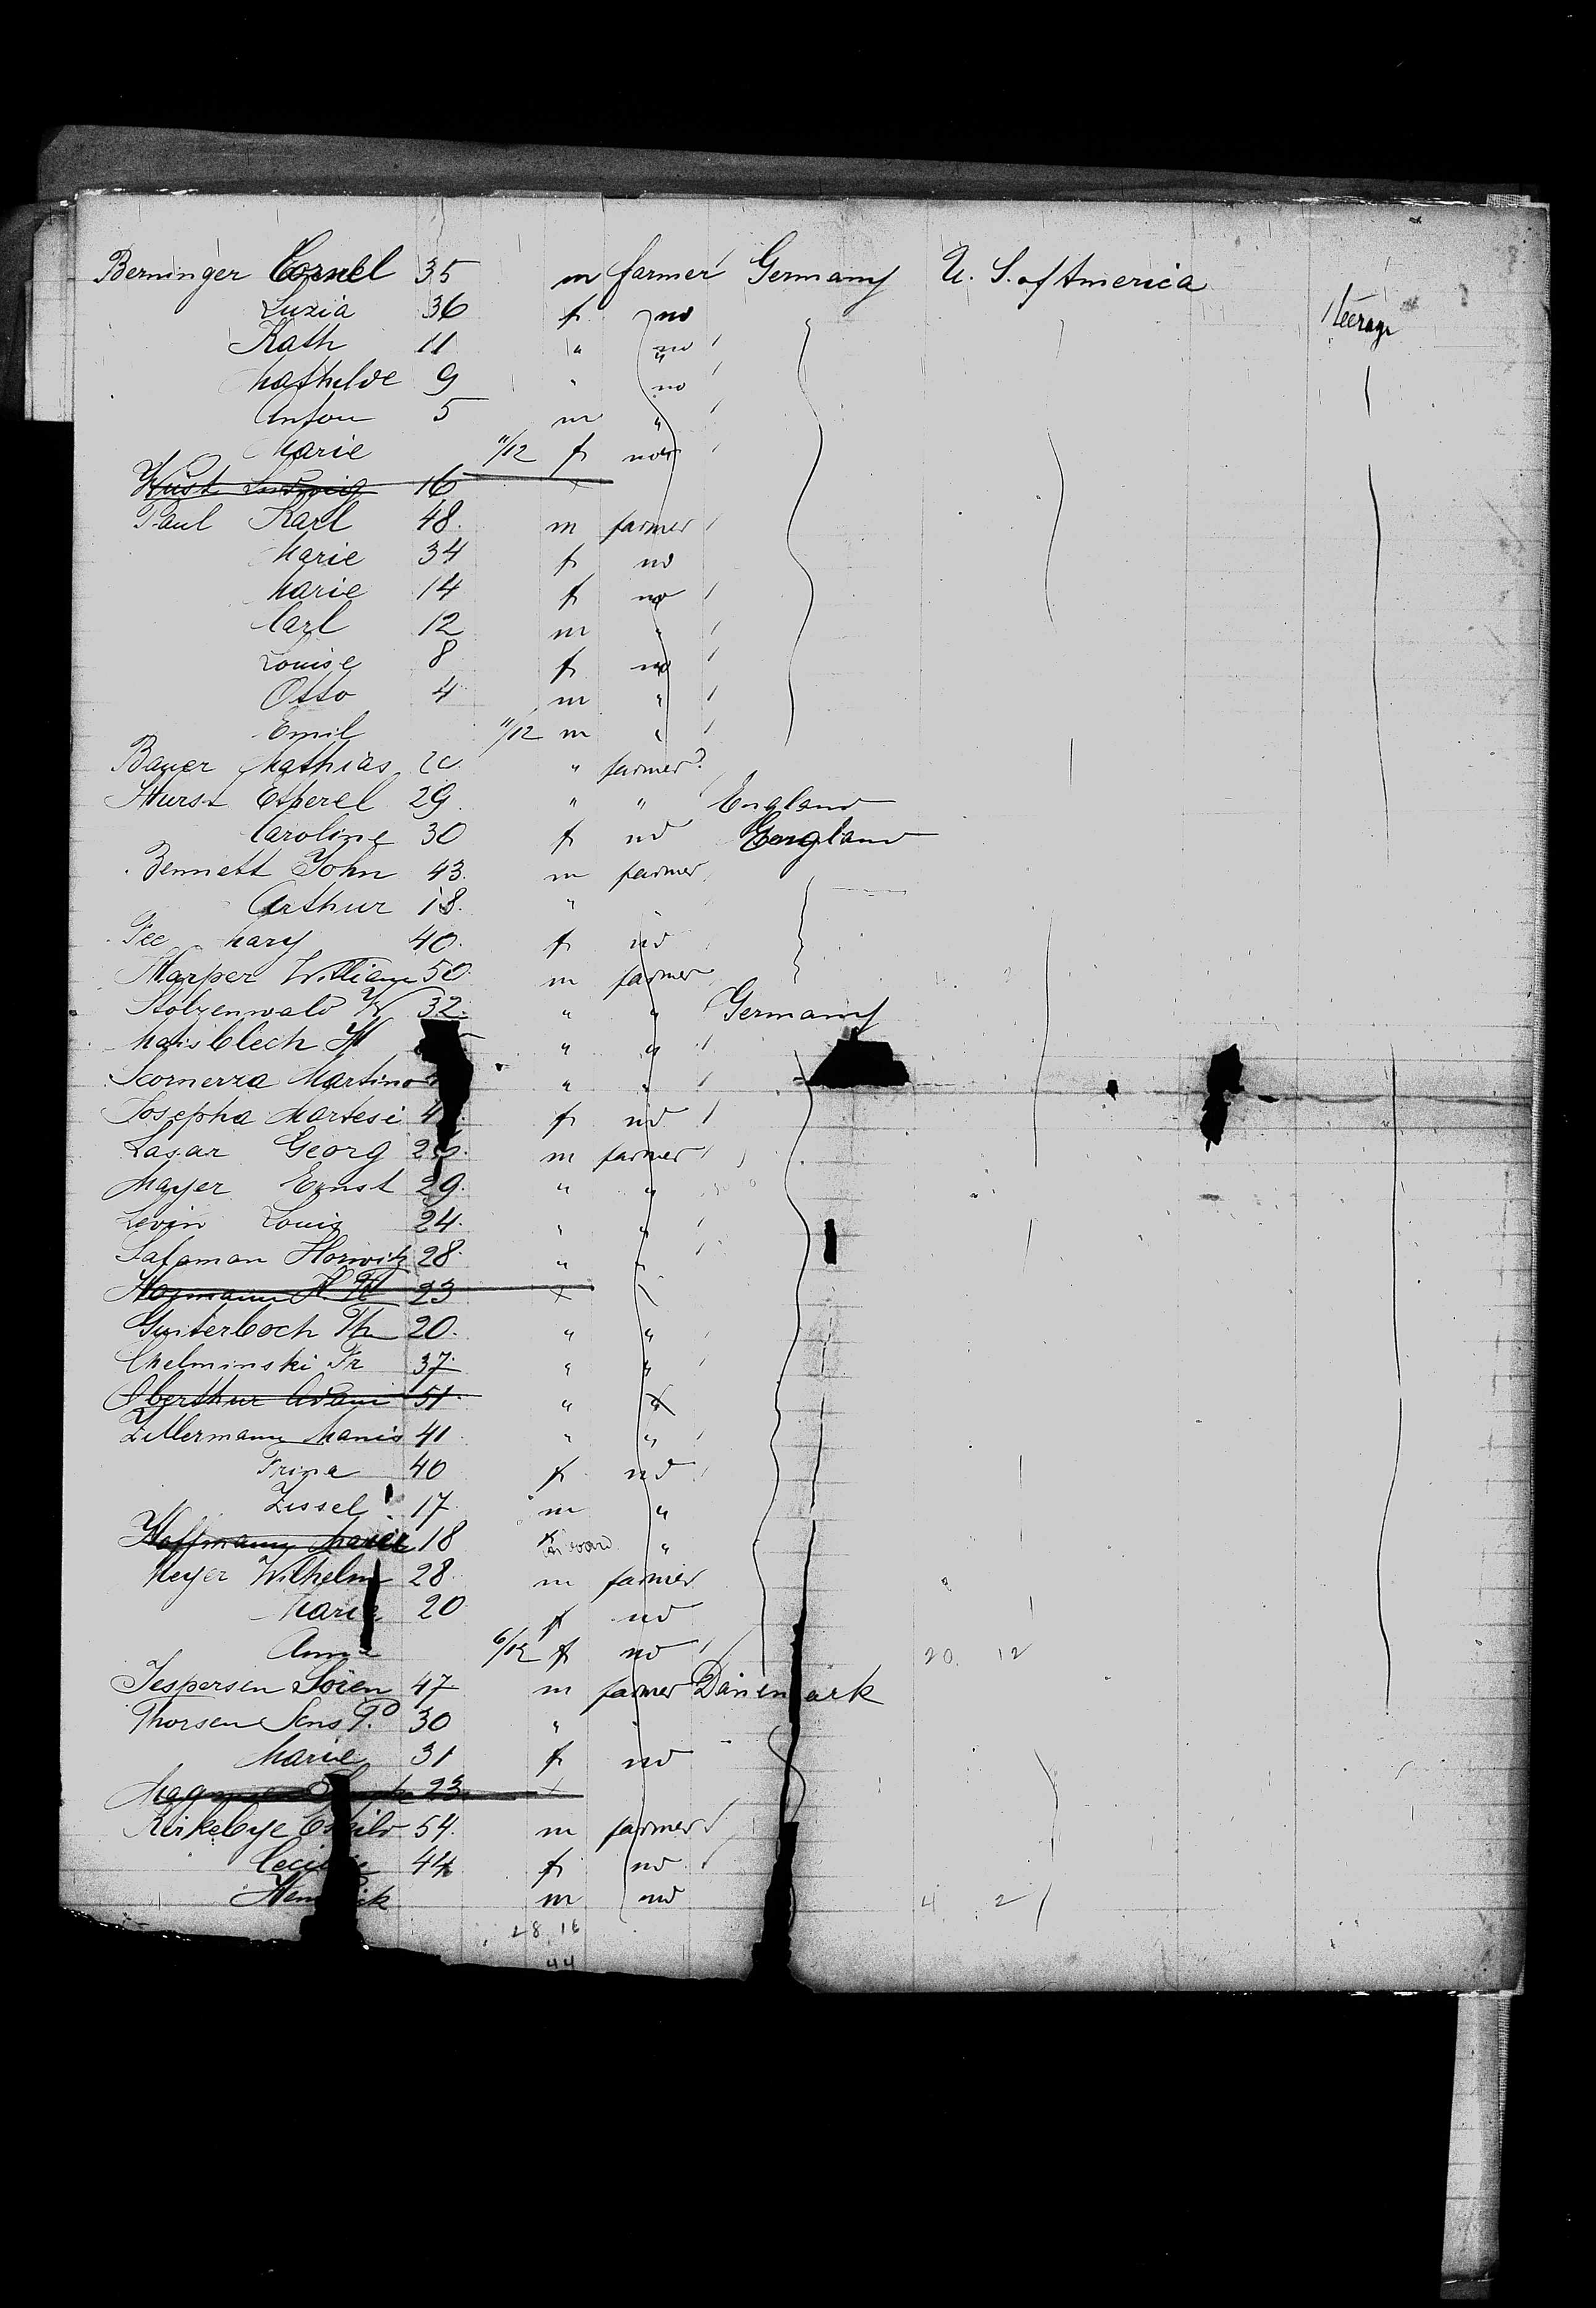 Berninger Cornel 35 m farmer Germany U. S. of America
Luzia 36 f no Steerage
Kath 11 " no
Mathilde 9 " no
Anton 5 m "
Marie 11/12 f no
Wüst Ludwig 16
Paul Karl 48. m farmer
Marie 34 f no
Marie 14 f no
Carl 12 m "
Louise 8 f no
Otto 4 m "
Emil 11/12 m "
Bauer Mathias " farmer
Hurst 29 " " England
Caroline 30 f no England
Bennett John 43. m farmer
Arthur 18. "
Fee Mary 40. f no
Harper William 50. m farmer
Stolzenwald W 32. " " Germany
Maisblech H " "
Scornerza Martino " "
Josepha Martesi f no
Lasar Georg m farmer
Mayer Ernst 29. " "
Levin Louis 24. " "
Salaman Horwitz 28. " "
23
Guiterboch Th 20. " "
Chelminski Fr 37. " "
Oberthur Adam 51. " "
Zillermann Manis 41 " "
Frina 40 f no
Zissel 17 m "
Hoffmann Marie 18 "
Meyer Wilhelm 28 m farmer
Marie 20 f no
Anna 6/12 f no 20. 12
Jespersen Sören 47 m farmer Dänemark
Thorsen Jens P. 30 "
Marie 31 f no
23.
Kirkebye Eskild 54. m farmer
Cecilie 44 f no
Hendrick m no 4 2
28. 16
44